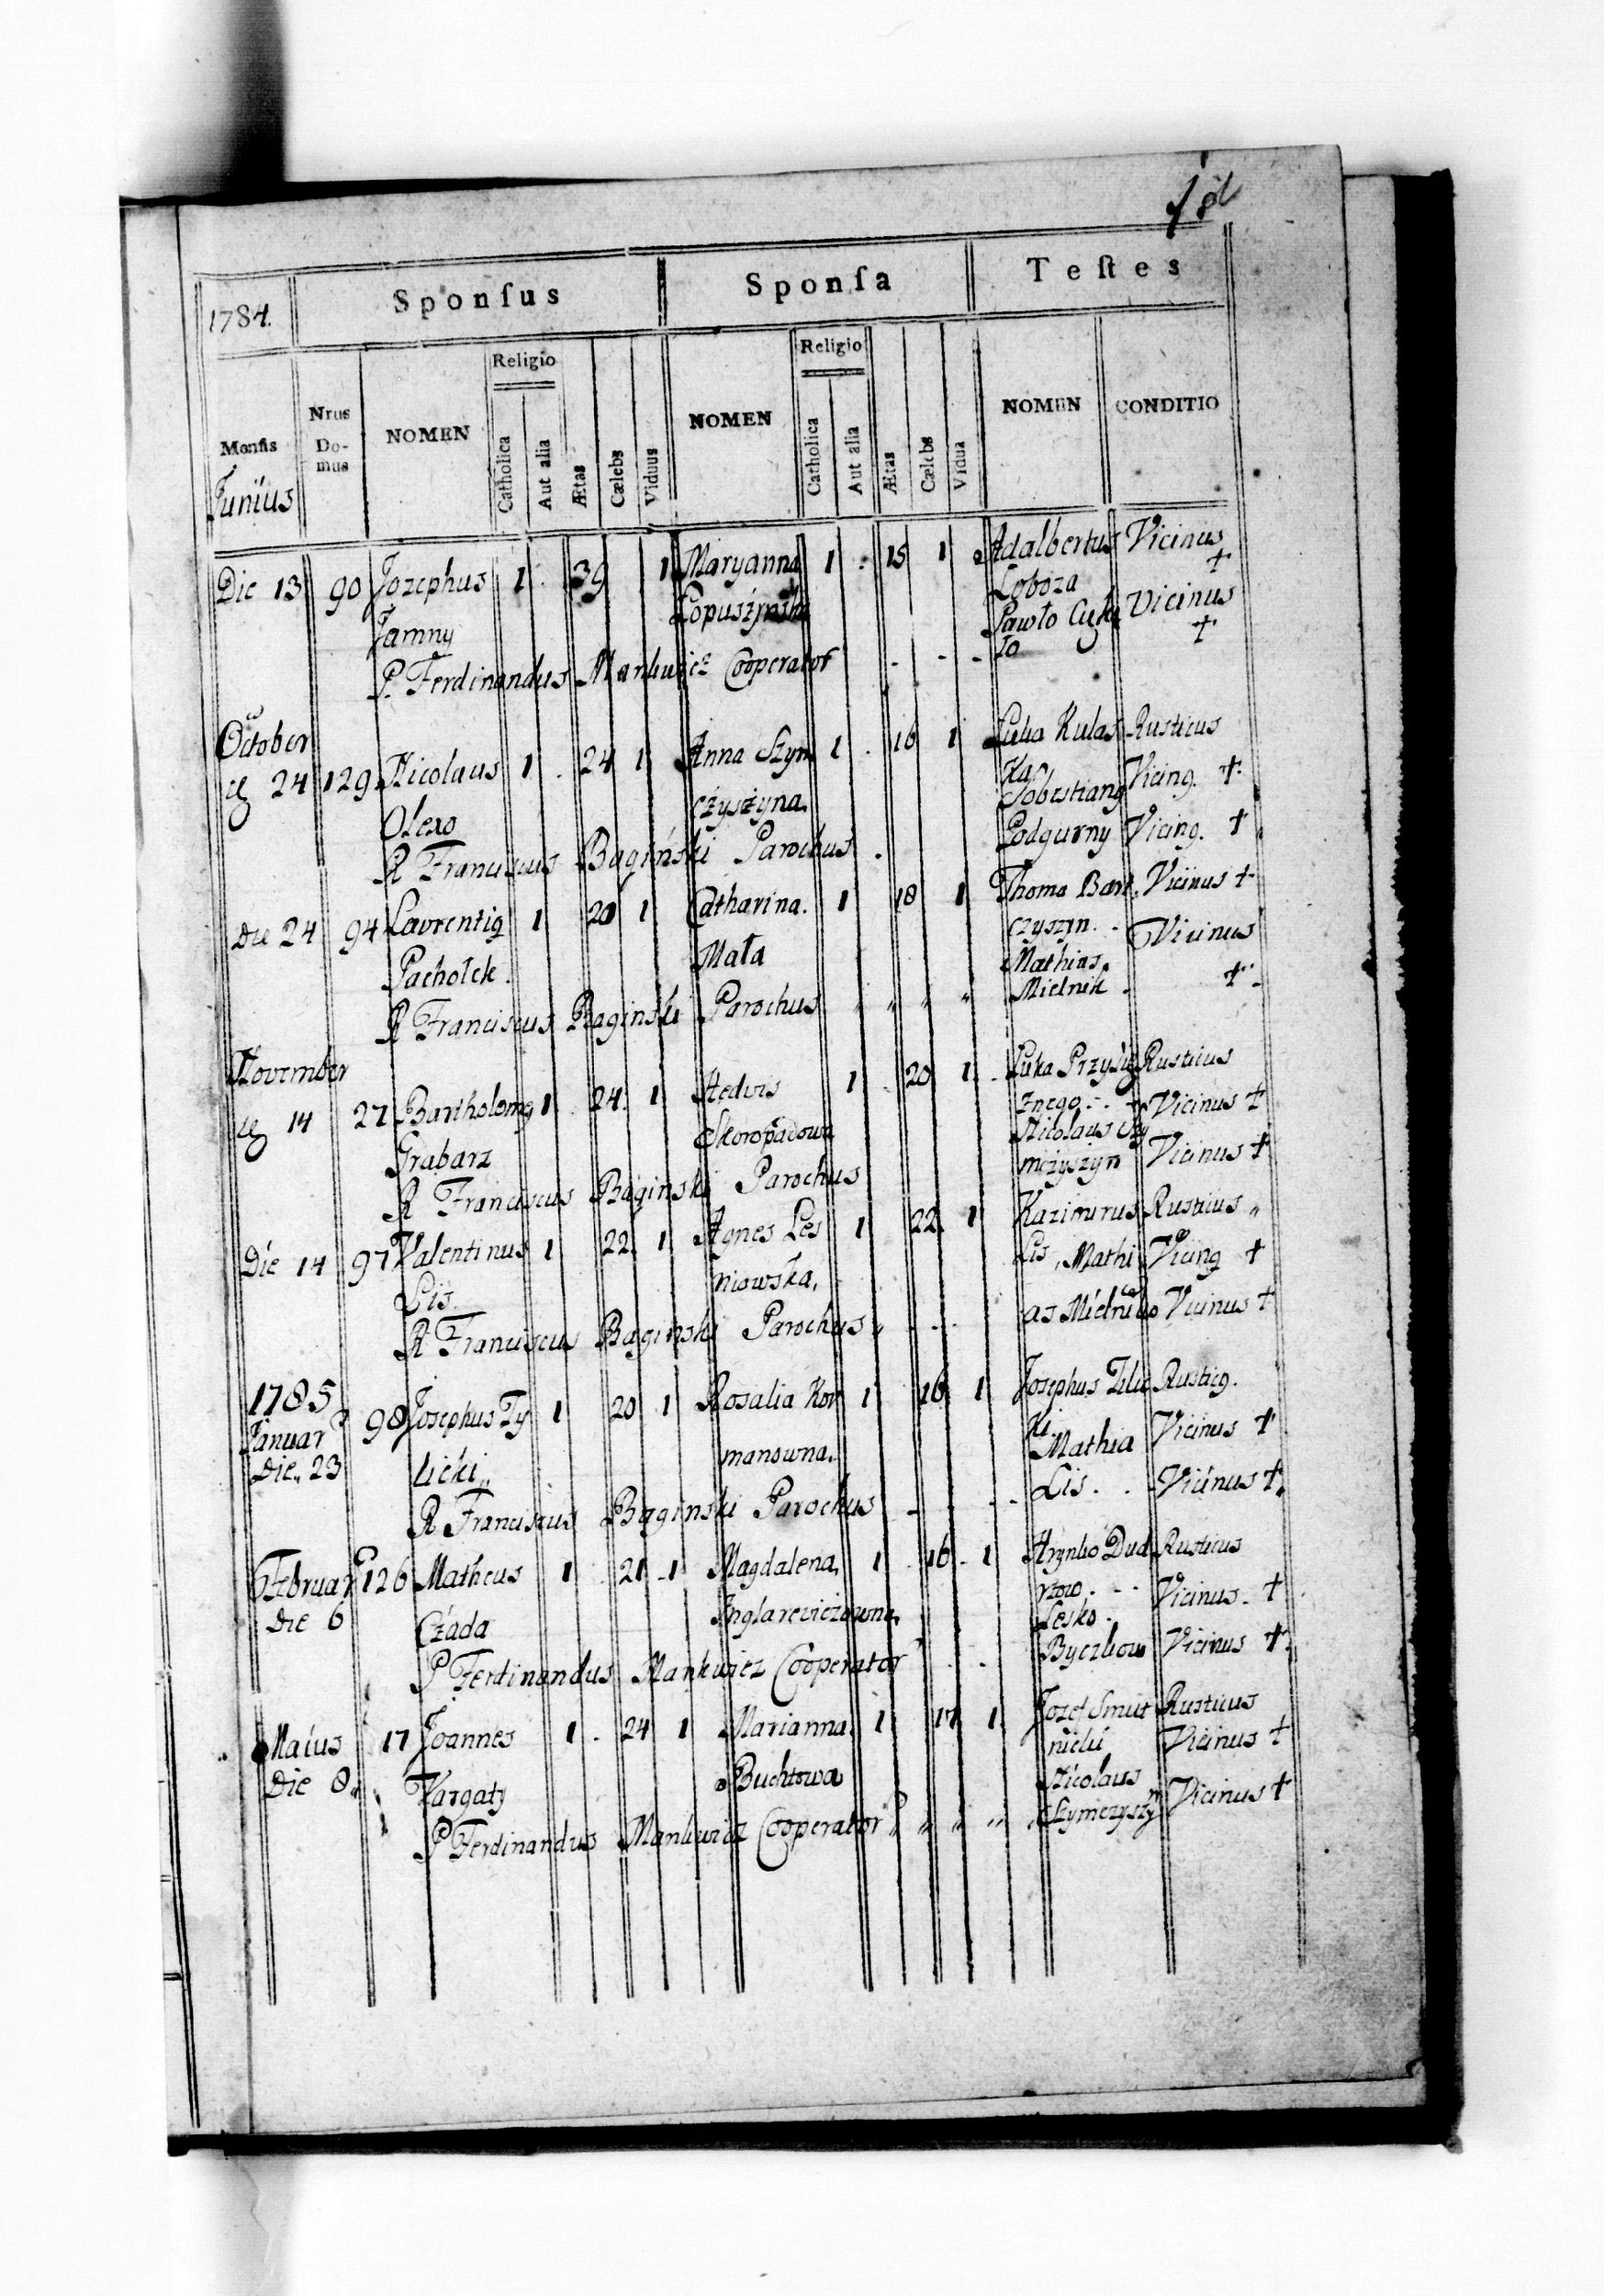 1784. Sponsus Sponsa Testes
Mensis Nrus Domus NOMEN Religio Catholica Aut alia Ætas Cælebs Viduus NOMEN Religio Catholica Aut alia Ætas Cælebs Vidua NOMEN CONDITIO
Junius
Die 13 90 Jozephus 1 . 39 1 Maryanna 1 . 15 1 Adalbertus Vicinus
Jamny Łoboza +
Pawło Vicinus
P. Ferdinandus Mankwicz Cooperator +
October
24 129 Nicolaus 1 . 24 1 Anna Szym 1 . 16 1 Luka Kulas Rusticus
Olexo czyszyna. Ka
Sobestiang Vicing. +
R Franciscus Baginski Parochus . Podgurny Vicing. +
Die 24 94 Lavrentig 1 20 1 Catharina. 1 18 1 Thoma Bart Vicinus +
Pachołek. Mała czyszyn. Vicinus
Mathias
R Franciscus Baginski Parochus Mielnik +
November
14 27 Bartholomg 1 24. 1 Hedvis 1 20 1 Luka Rusticus
Grabarz Skoropadowa znego Vicinus +
Nicolaus Szy
R Franciscus Baginski Parochus mczyszyn Vicinus +
Die 14 97 Valentinus 1 22. 1 Agnes Les 1 22. 1 Kazimirus Rusticus
Lis. niowska, Lis, Mathi Vicing +
R Franciscus Baginski Parochus as Vicinus +
1785
Januar 98 Josephus Ty 1 20 1 Rosalia Kor 1 16 1 Josephus Rusticg.
Die 23 licki manowna. Ki. Mathia Vicinus +
R Franciscus Baginski Parochus Lis. Vicinus +
Februar 126 Matheus 1 21 1 Magdalena, 1 16 1 Hrynko Dud Rusticus
Die 6 Czada rzow Vicinus. +
Lesko
P Ferdinandus Mankwicz Cooperator Byczkow Vicinus +
Maius 17 Joannes 1 . 24 1 Marianna 1 17 1 Jozef Smut Rusticus
Die 8 Vargaty Buchtowa nicki Vicinus +
Nicolaus
P Ferdinandus Mankwicz Cooperator Szymczyszy Vicinus +